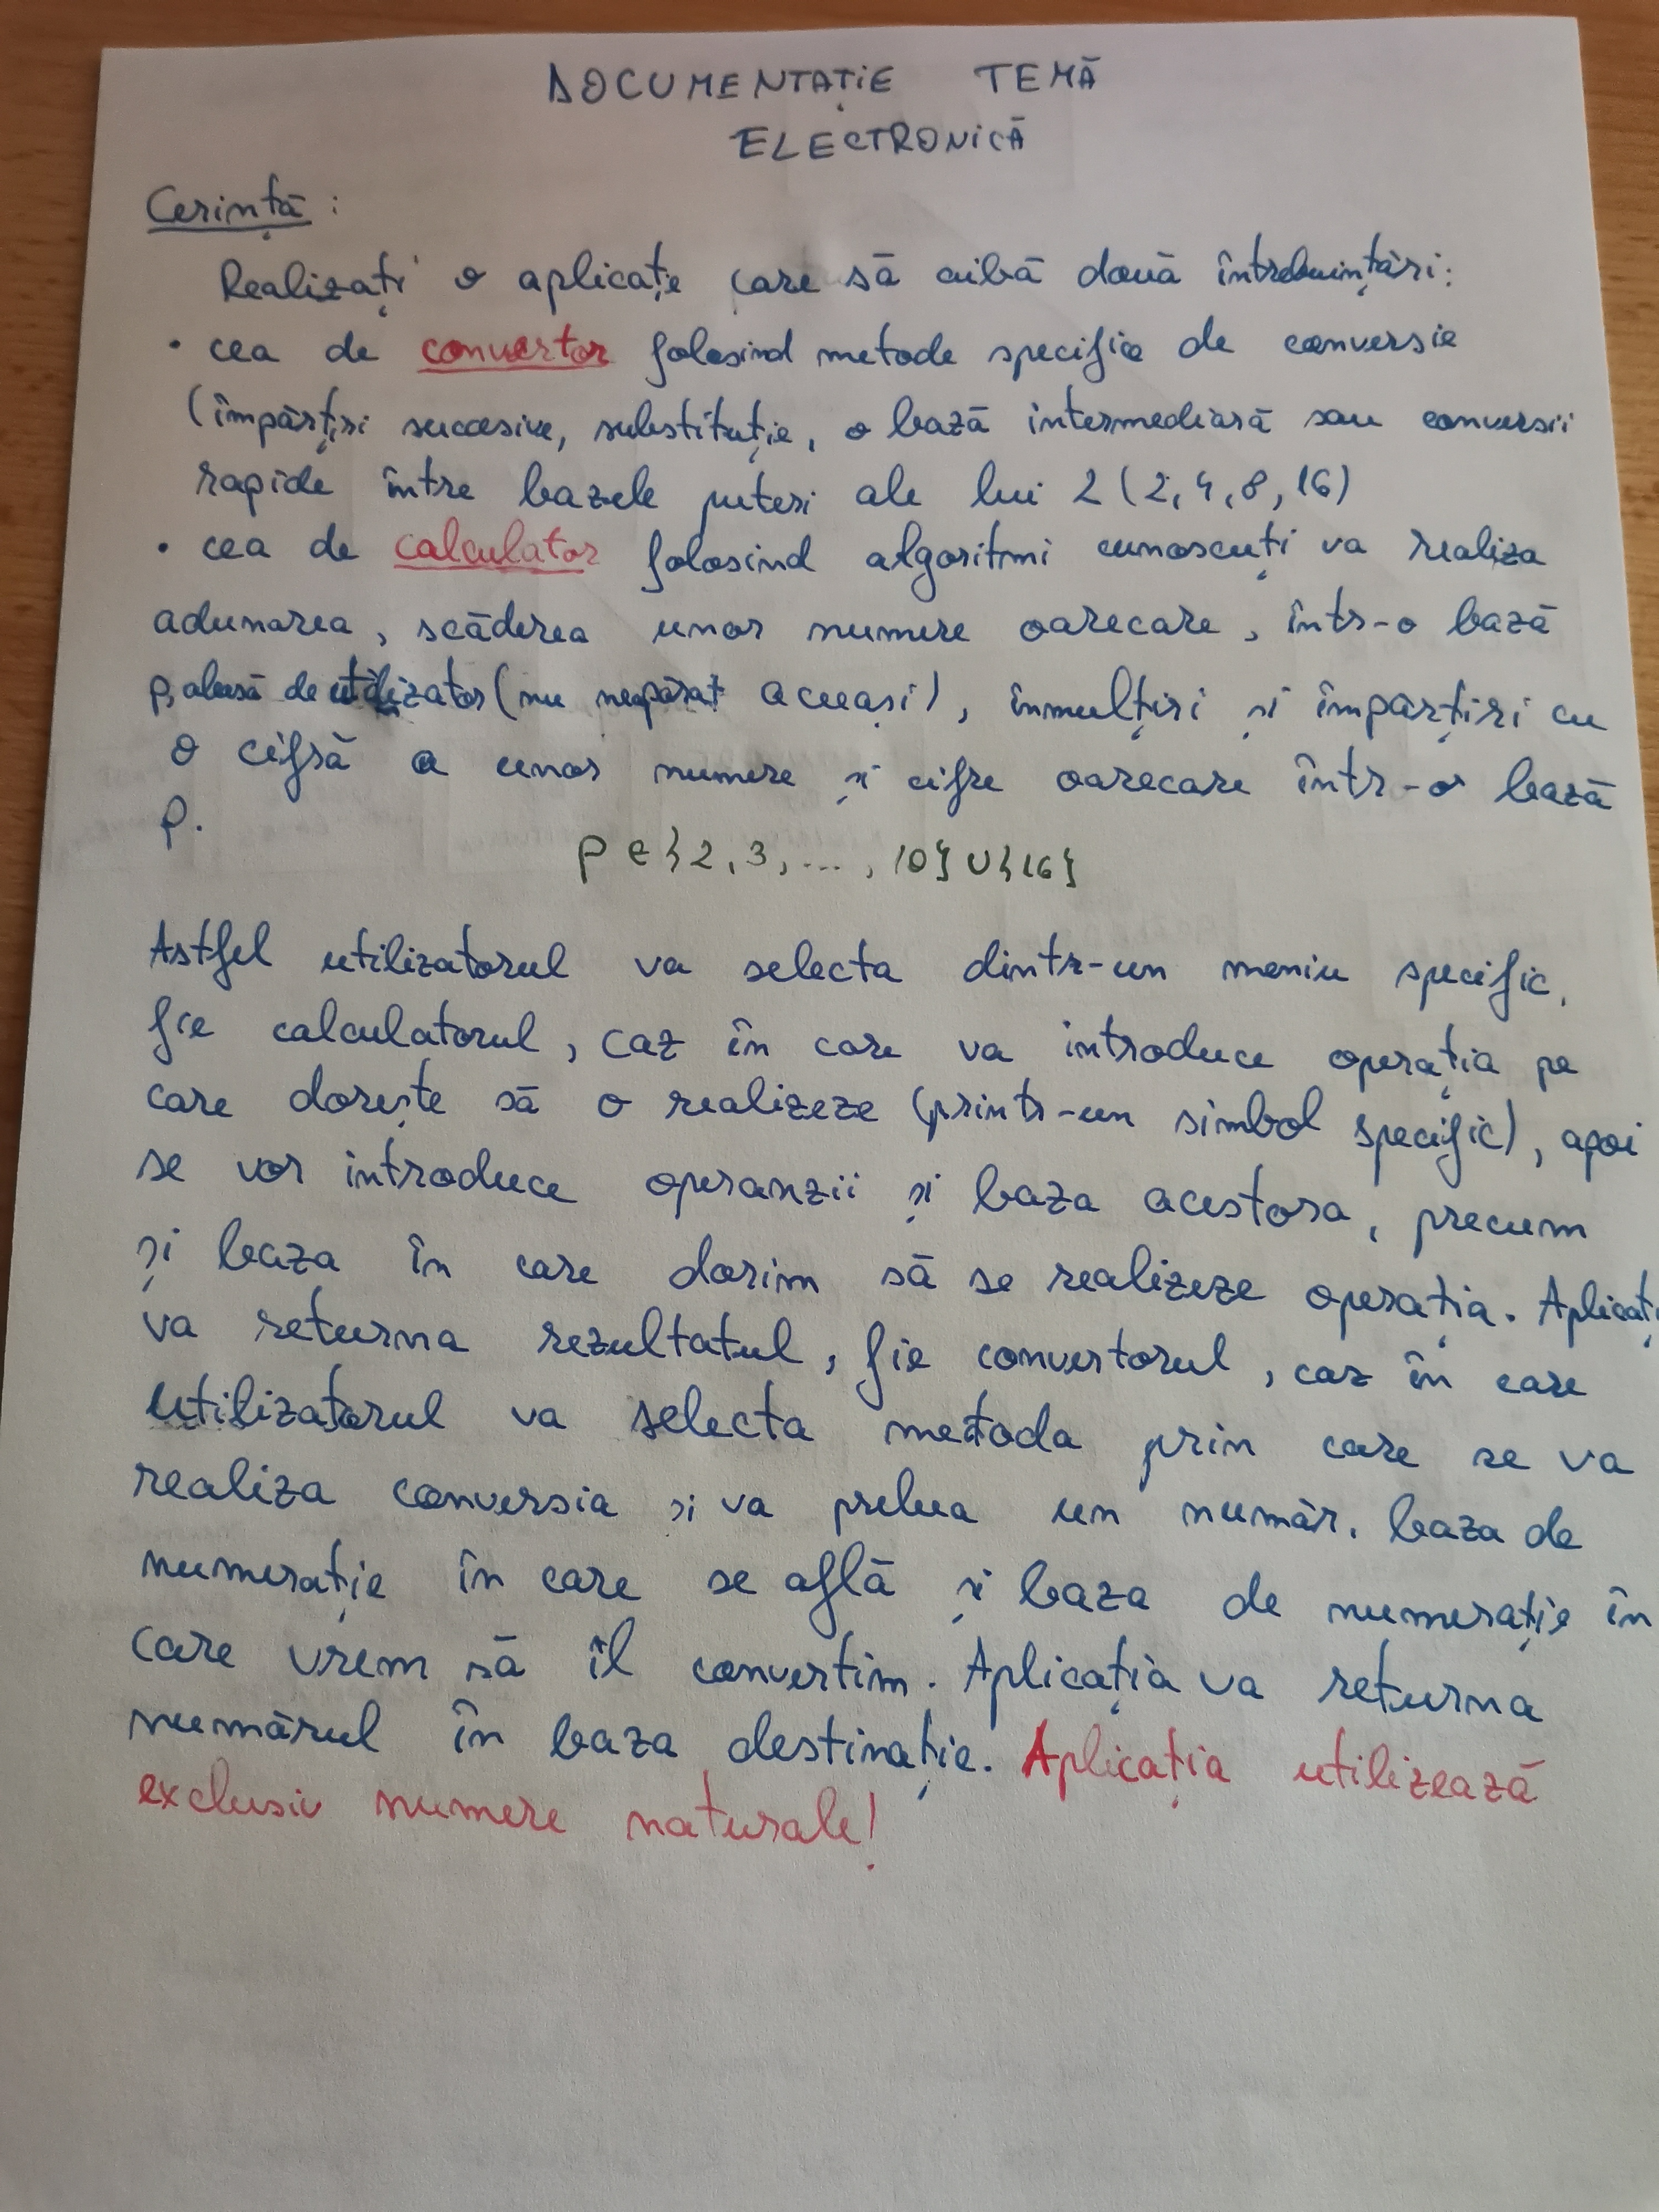 DOCUMENTAȚIE TEMĂ
ELECTRONICĂ
Cerință:
Realizați o aplicație care să aibă două întrebuințări:
• cea de convertor folosind metode specifice de conversie
(împărțiri succesive, substituție, o bază intermediară sau conversii
rapide între bazele puteri ale lui 2 (2, 4, 8, 16)
• cea de calculator folosind algoritmi cunoscuți va realiza
adunarea, scăderea unor numere oarecare, într-o bază
p, aleasă de utilizator (nu neapărat aceeași), înmulțiri și împărțiri cu
o cifră a unor numere și cifre oarecare într-o bază
p.
p ∈ {2, 3, ..., 10} ∪ {16}
Astfel utilizatorul va selecta dintr-un meniu specific,
fie calculatorul, caz în care va introduce operația pe
care dorește să o realizeze (printr-un simbol specific), apoi
se vor introduce operanzii și baza acestora, precum
și baza în care dorim să se realizeze operația. Aplicați
va returna rezultatul, fie convertorul, caz în care
utilizatorul va selecta metoda prin care se va
realiza conversia și va prelua un număr, baza de
numerație în care se află și baza de numerație în
care vrem să îl convertim. Aplicația va returna
numărul în baza destinație. Aplicația utilizează
exclusiv numere naturale!